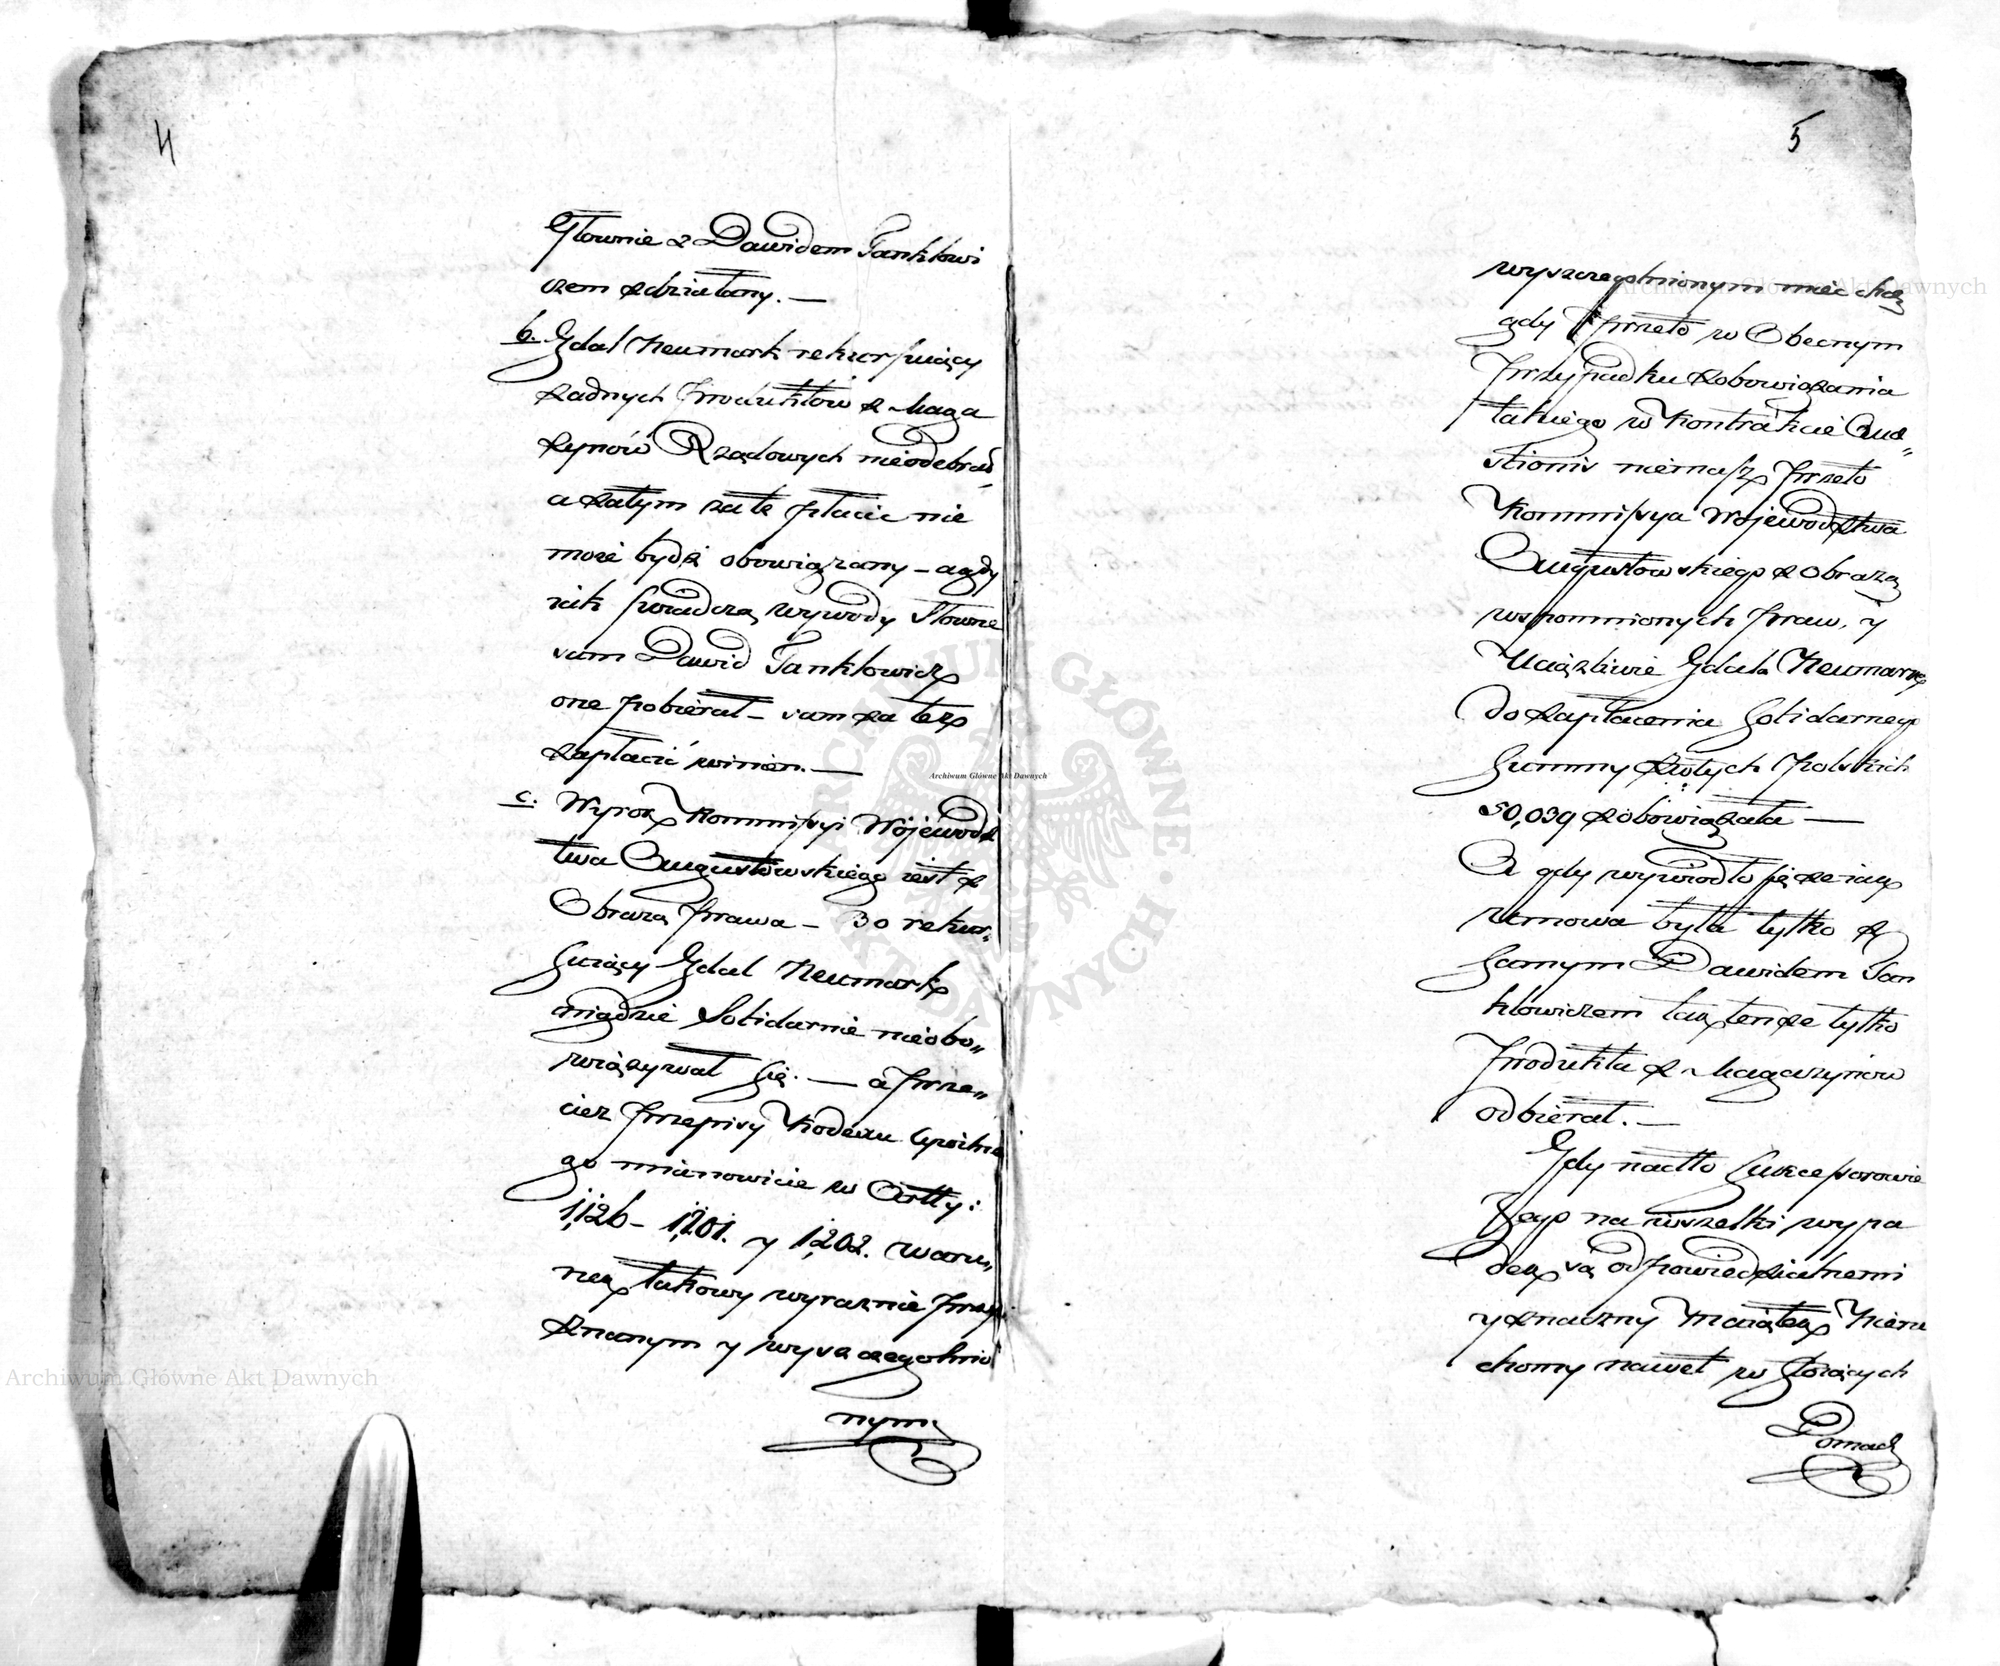 4
Głownie z Dawidem Jankłowi
czem zdziałany. —
b. Gdal Neumark rekursuiący
żadnych Produktów z Maga
zynów Rządowych nieodebrał
a zatym za te płacić nie
może bydź obowiązany – a gdy
iak świadczą wywody Słowne
sam Dawid Janklowicz
one pobierał – sam za też
zapłacić winien. —
c. Wyrok Kommissyi Wojewodz
twa Augustowskiego iest z
Obrazą Prawa – bo rekur„
suiący Gdal Neumark
nigdzie Solidarnie nieobo„
wiązywał się. — a prze„
cież Przepisy Kodexu Cywilne
go mianowicie w Artty:
1,126 – 1,201. y 1,202. waru„
nek takowy wyraźnie Przy
znanym y wyszczegolnio
nym
5
wyszczegolnionym mieć chcą
gdy przeto w Obecnym
Przypadku zobowiązania
takiego w Kontrakcie Que„
stionis niemasz przeto
Kommissya Wojewodztwa
Augustowskiego z Obrazą
wspomnionych praw, y
Uciążliwie Gdala Neumark
do zapłacenia Solidarnego
Summy Złotych Polskich
50,039 zobowiązała —
A gdy wywiodło się że iak
umowa była tylko z
Samym Dawidem Jan
kłowiczem tak tenże tylko
Produkta z Magazynów
odbierał. —
Gdy nadto Sukcessorowie
Jego na wszelki wypa
dek są odpowiedzialnemi
y znaczny Maiątek Nieru
chomy nawet w Stoiących
Domach
Archiwum Główne Akt Dawnych
Archiwum Główne Akt Dawnych
Archiwum Główne Akt Dawnych
ARCHIWUM GŁÓWNE AKT DAWNYCH